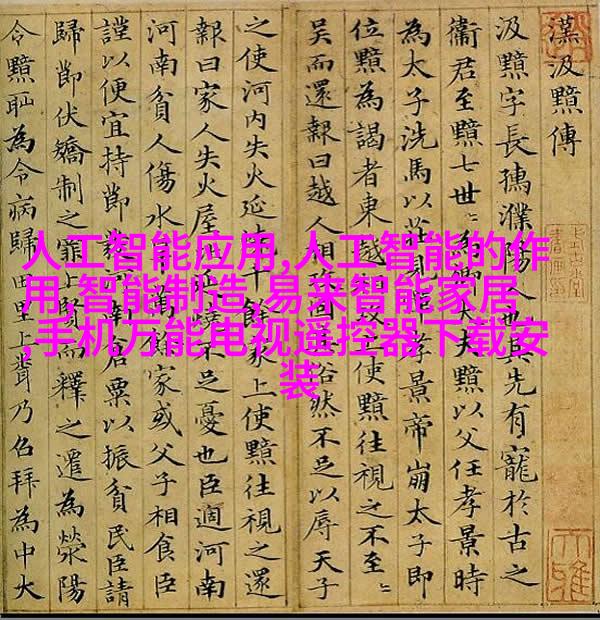 漢汲黯傳
汲黯字長孺濮陽人也其先有寵於古之
衞君至黯七世〻卿大夫黯以父任孝景時
為太子洗馬以莊見孝景帝崩太子即
位黯為謁者東越攻使黯往視之不至〻
吳而還報曰越人相攻固俗然不足以辱天子
之使河内失火延千餘家上使黯往視之還
報曰家人失火屋延燒不足憂也臣適河南
河南貧人傷水萬餘家或父子相食臣
謹以便宜持節河南倉粟以振貧民臣請
歸節伏矯制之罪上而釋之遷為滎陽
令黯恥為令病歸田里上乃召拜為中大
人工智能应用,人工智能的作
用,智能制造,易来智能家居
,手机万能电视遥控器下载安
装